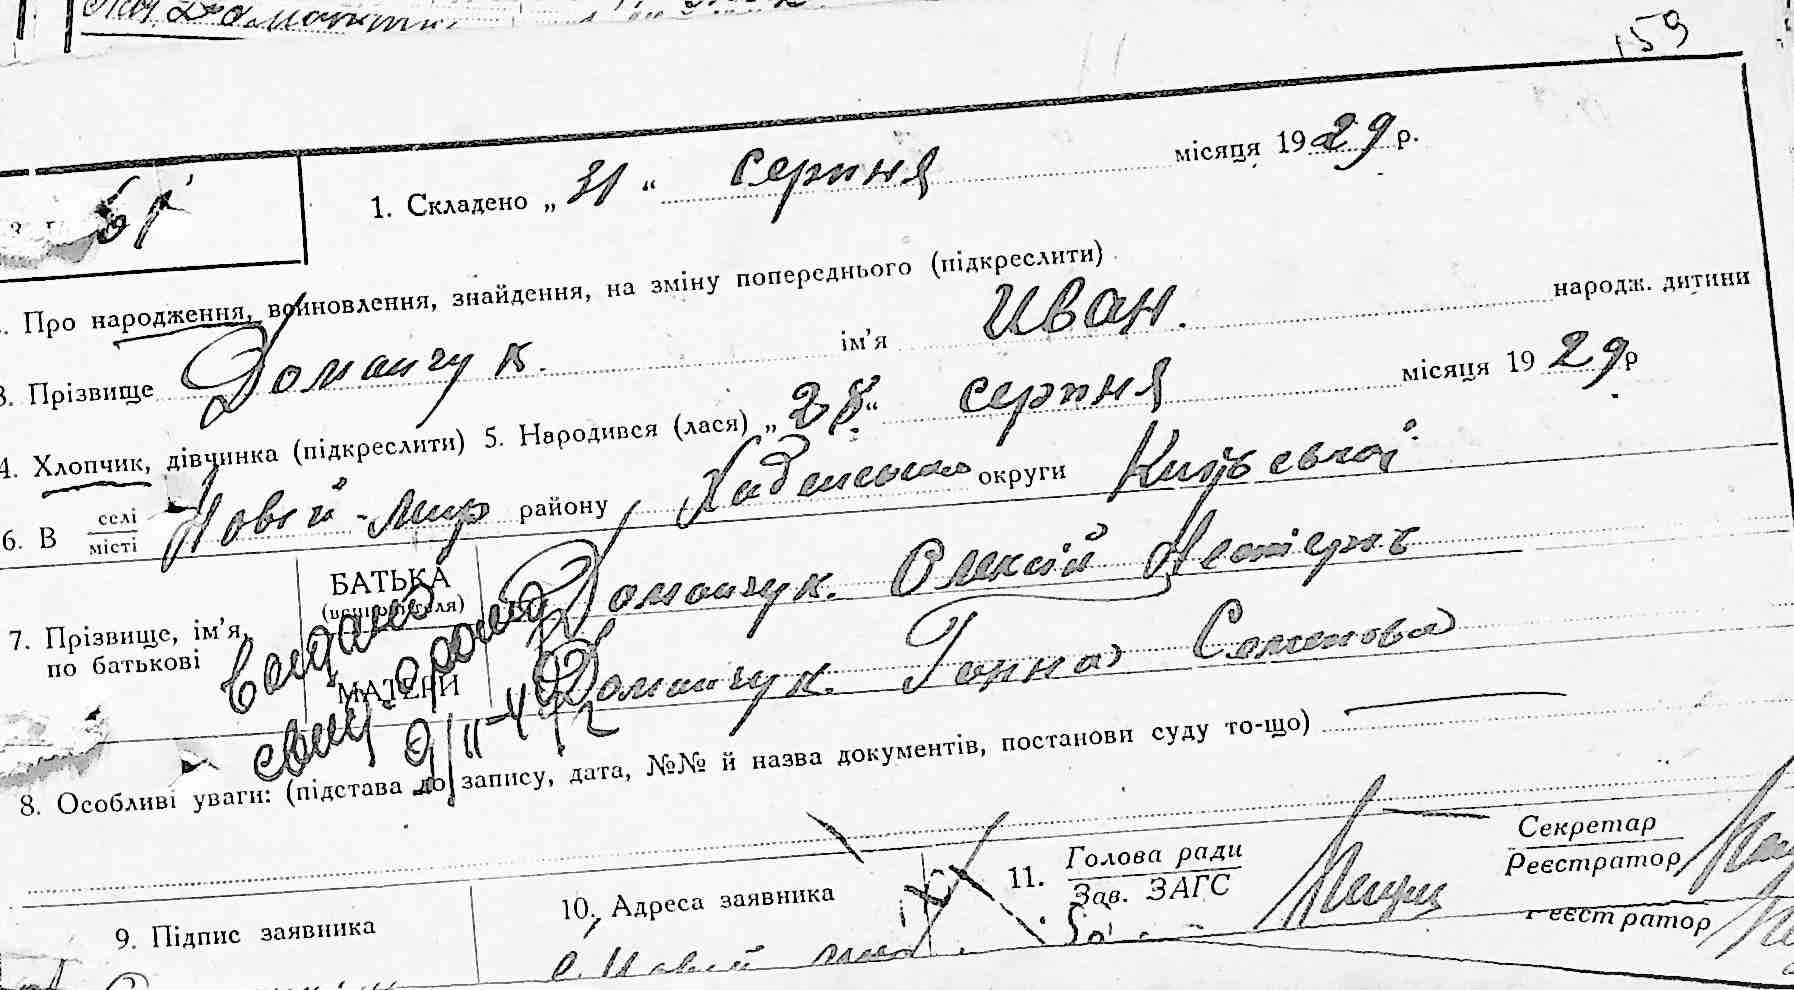 159
61
1. Складено „ 31 “ серпня місяця 1929 р.
Про народження, воиновлення, знайдення, на зміну попереднього (підкреслити)
3. Прізвище Доманчук. ім’я Иван. народж. дитини
4. Хлопчик, дівчинка (підкреслити) 5. Народився (лася) „ 28 “ серпня місяця 1929 р
6. В селі місті Новій-Мир району округи Київської
7. Прізвище, ім’я, по батькові
БАТЬКА Доманчук. Олексій
МАТЕРИ Доманчук. Ганна Семенова
8. Особливі уваги: (підстава до запису, дата, №№ й назва документів, постанови суду то-що)
9. Підпис заявника
10. Адреса заявника
с. Новий мир
11. Голова ради
Зав. ЗАГС
Секретар
Реєстратор
Реєстратор